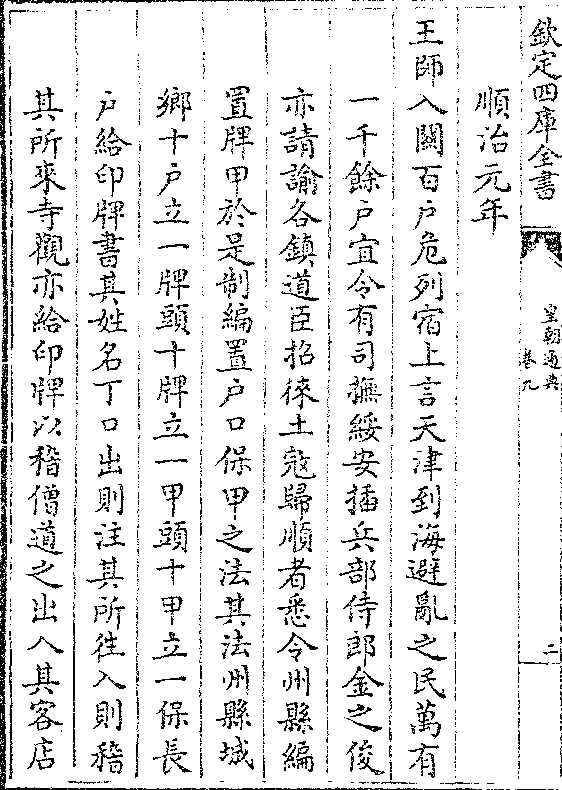 欽定四庫全書
皇朝通典
卷九
二
順治元年
王師入關百戶危列宿上言天津到海避亂之民萬有
一千餘戶宜令有司撫綏安插兵部侍郎金之俊
亦請諭各鎮道臣招徠土寇歸順者悉令州縣編
置牌甲於是制編置戶口保甲之法其法州縣城
鄉十戶立一牌頭十牌立一甲頭十甲立一保長
戶給印牌書其姓名丁口出則注其所往入則稽
其所來寺觀亦給印牌以稽僧道之出入其客店